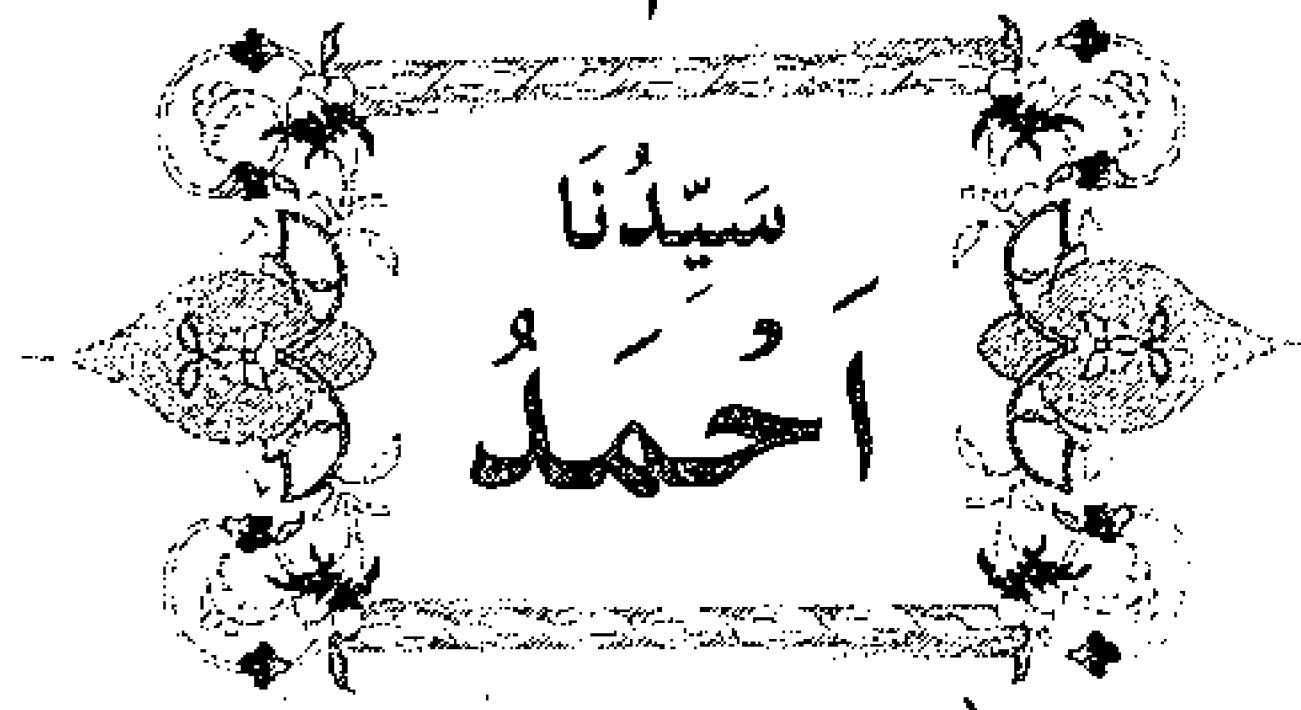 سَيِّدُنَا
اَحْمَدُ